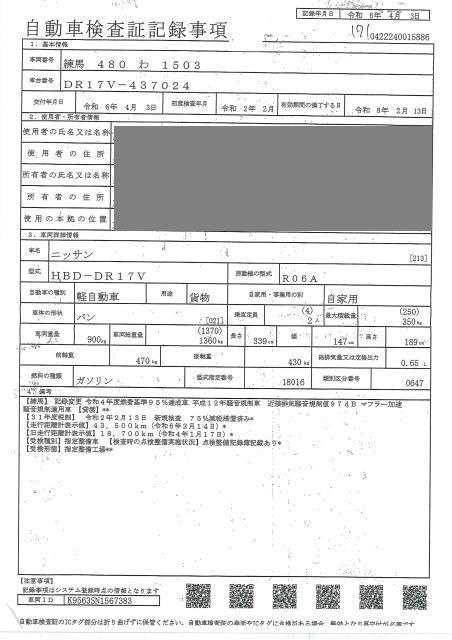 記録年月日 令和 6年 4月 3日
自動車検査証記録事項
171 0422240015886
1. 基本情報
車両番号 練馬 480 わ 1503
車台番号 DR17V-437024
交付年月日 令和 6年 4月 3日 初度検査年月 令和 2年 2月 有効期間の満了する日 令和 8年 2月 13日
2. 使用者・所有者情報
使用者の氏名又は名称
使用者の住所
所有者の氏名又は名称
所有者の住所
使用の本拠の位置
3. 車両詳細情報
車名 ニッサン [213]
型式 HBD-DR17V 原動機の型式 R06A
自動車の種別 軽自動車 用途 貨物 自家用・事業用の別 自家用
車体の形状 バン [021] 乗車定員 (4) 2人 最大積載量 (250) 350kg
車両重量 900kg 車両総重量 (1370) 1360kg 長さ 339cm 幅 147cm 高さ 189cm
前軸重 470kg 後軸重 430kg 総排気量又は定格出力 0.65 L
燃料の種類 ガソリン 型式指定番号 18016 類別区分番号 0647
4. 備考
【練馬】 記録変更 令和4年度燃費基準95%達成車 平成12年騒音規制車 近接排気騒音規制値97dB マフラー加速
騒音規制適用車 【貸渡】**
【31年度税制】 令和2年2月13日 新規検査 75%減税措置済み*
【走行距離計表示値】43,500km（令和6年2月14日）*
【旧走行距離計表示値】18,700km（令和4年1月17日）*
【受検種別】指定整備車 【検査時の点検整備実施状況】点検整備記録簿記載あり*
【受検形態】指定整備工場**
【注意事項】
記録事項はシステム登録時点の情報となります
車両ID K9563SN1567383
自動車検査証のICタグ部分は折り曲げずに保管ください。